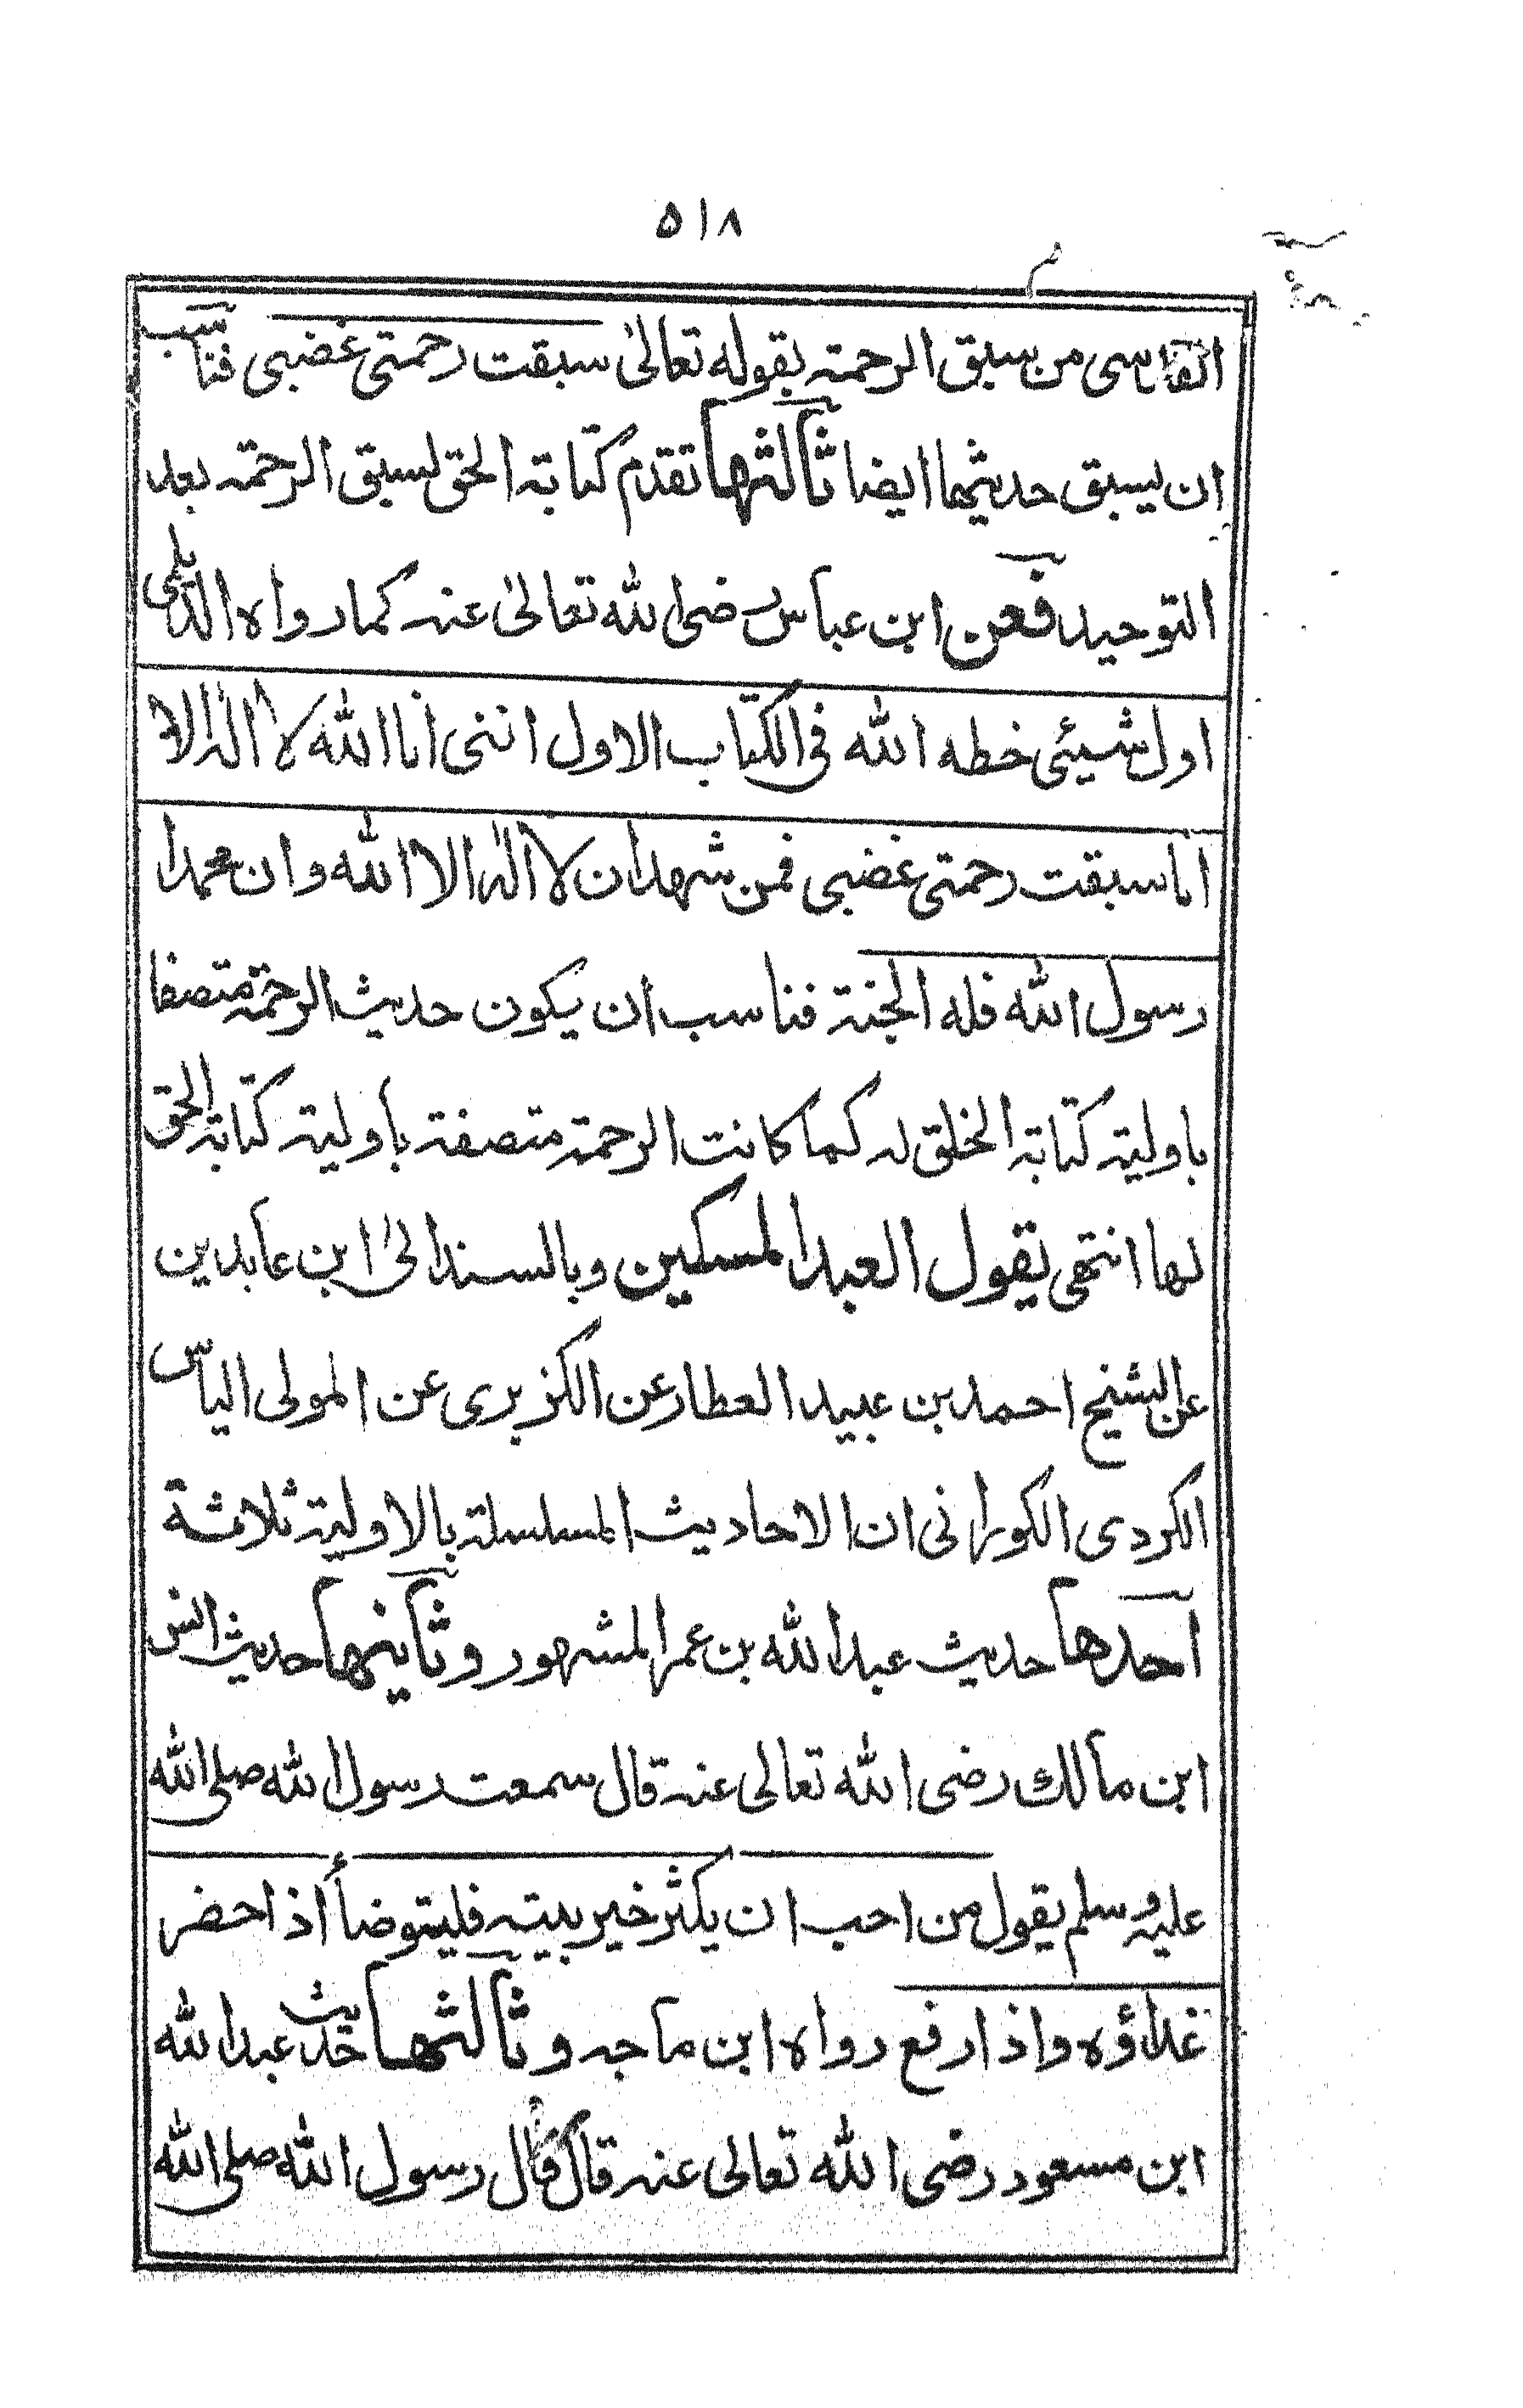 ٥١٨
الفاسى من سبق الرحمة بقوله تعالىٰ سبقت رحمتى غضبى فناسب
ان يسبق حديثها ايضا ثالثها تقدم كتابة الحق لسبق الرحمة بعد
التوحيد فعن ابن عباس رضى الله تعالىٰ عنه كما رواه الديلمى
اول شيئى خطه الله فى الكتاب الاول اننى انا الله لا اله الا
انا سبقت رحمتى غضبى فمن شهد ان لا اله الا الله وان محمدا
رسول الله فله الجنة فناسب ان يكون حديث الرحمة متصفا
باولية كتابة الخلق له كما كانت الرحمة متصفة باولية كتابة الحق
لها انتهى يقول العبد المسكين وبالسند الىٰ ابن عابدين
عن الشيخ احمد بن عبيد العطار عن الكزبرى عن المولى الياس
الكردى الكورانى ان الاحاديث المسلسلة بالاولية ثلاثة
احدها حديث عبد الله بن عمر المشهور وثانيها حديث انس
ابن مالك رضى الله تعالى عنه قال سمعت رسول الله صلى الله
عليه وسلم يقول من احب ان يكثر خير بيته فليتوضأ اذا حضر
غداؤه واذا رفع رواه ابن ماجه وثالثها حديث عبد الله
ابن مسعود رضى الله تعالى عنه قال قال رسول الله صلى الله